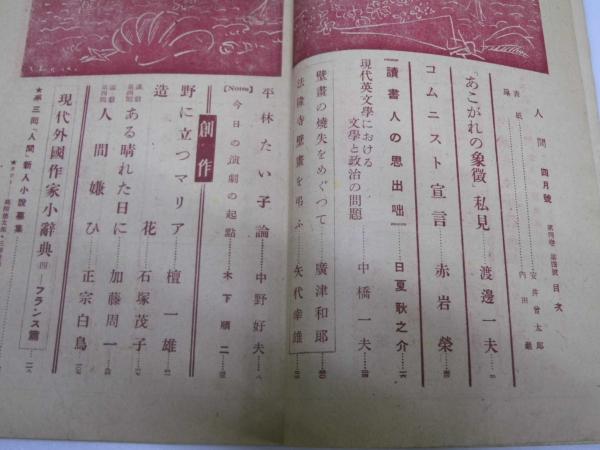 人間 四月號 第四卷 第四號 目次
表紙……安井曾太郎
扉……內田巖
「あこがれの象徵」私見……渡邊一夫
コムニスト宣言……赤岩榮
【讀書人の思出咄】……日夏耿之介
現代英文學における文學と政治の問題……中橋一夫
壁畫の燒失をめぐつて……廣津和郎
法隆寺壁畫を弔ふ……矢代幸雄
平林たい子論……中野好夫
【Notes】今日の演劇の起點……木下順二
創作
野に立つマリア……檀一雄
造花……石塚茂子
ある晴れた日に……加藤周一
人間嫌ひ……正宗白鳥
現代外國作家小辭典 四 ―フランス篇
★第三回「人間」新人小說募集